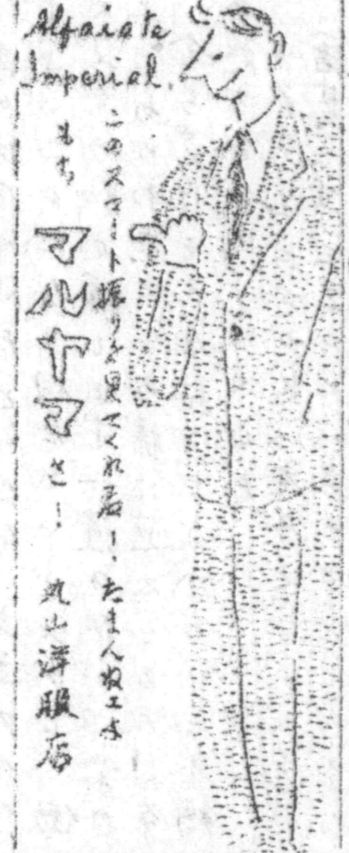 Alfaiate
Imperial.
このスマート振りを見てくれ給へ!たまん似エは
もち、マルヤマさ! 丸山洋服店